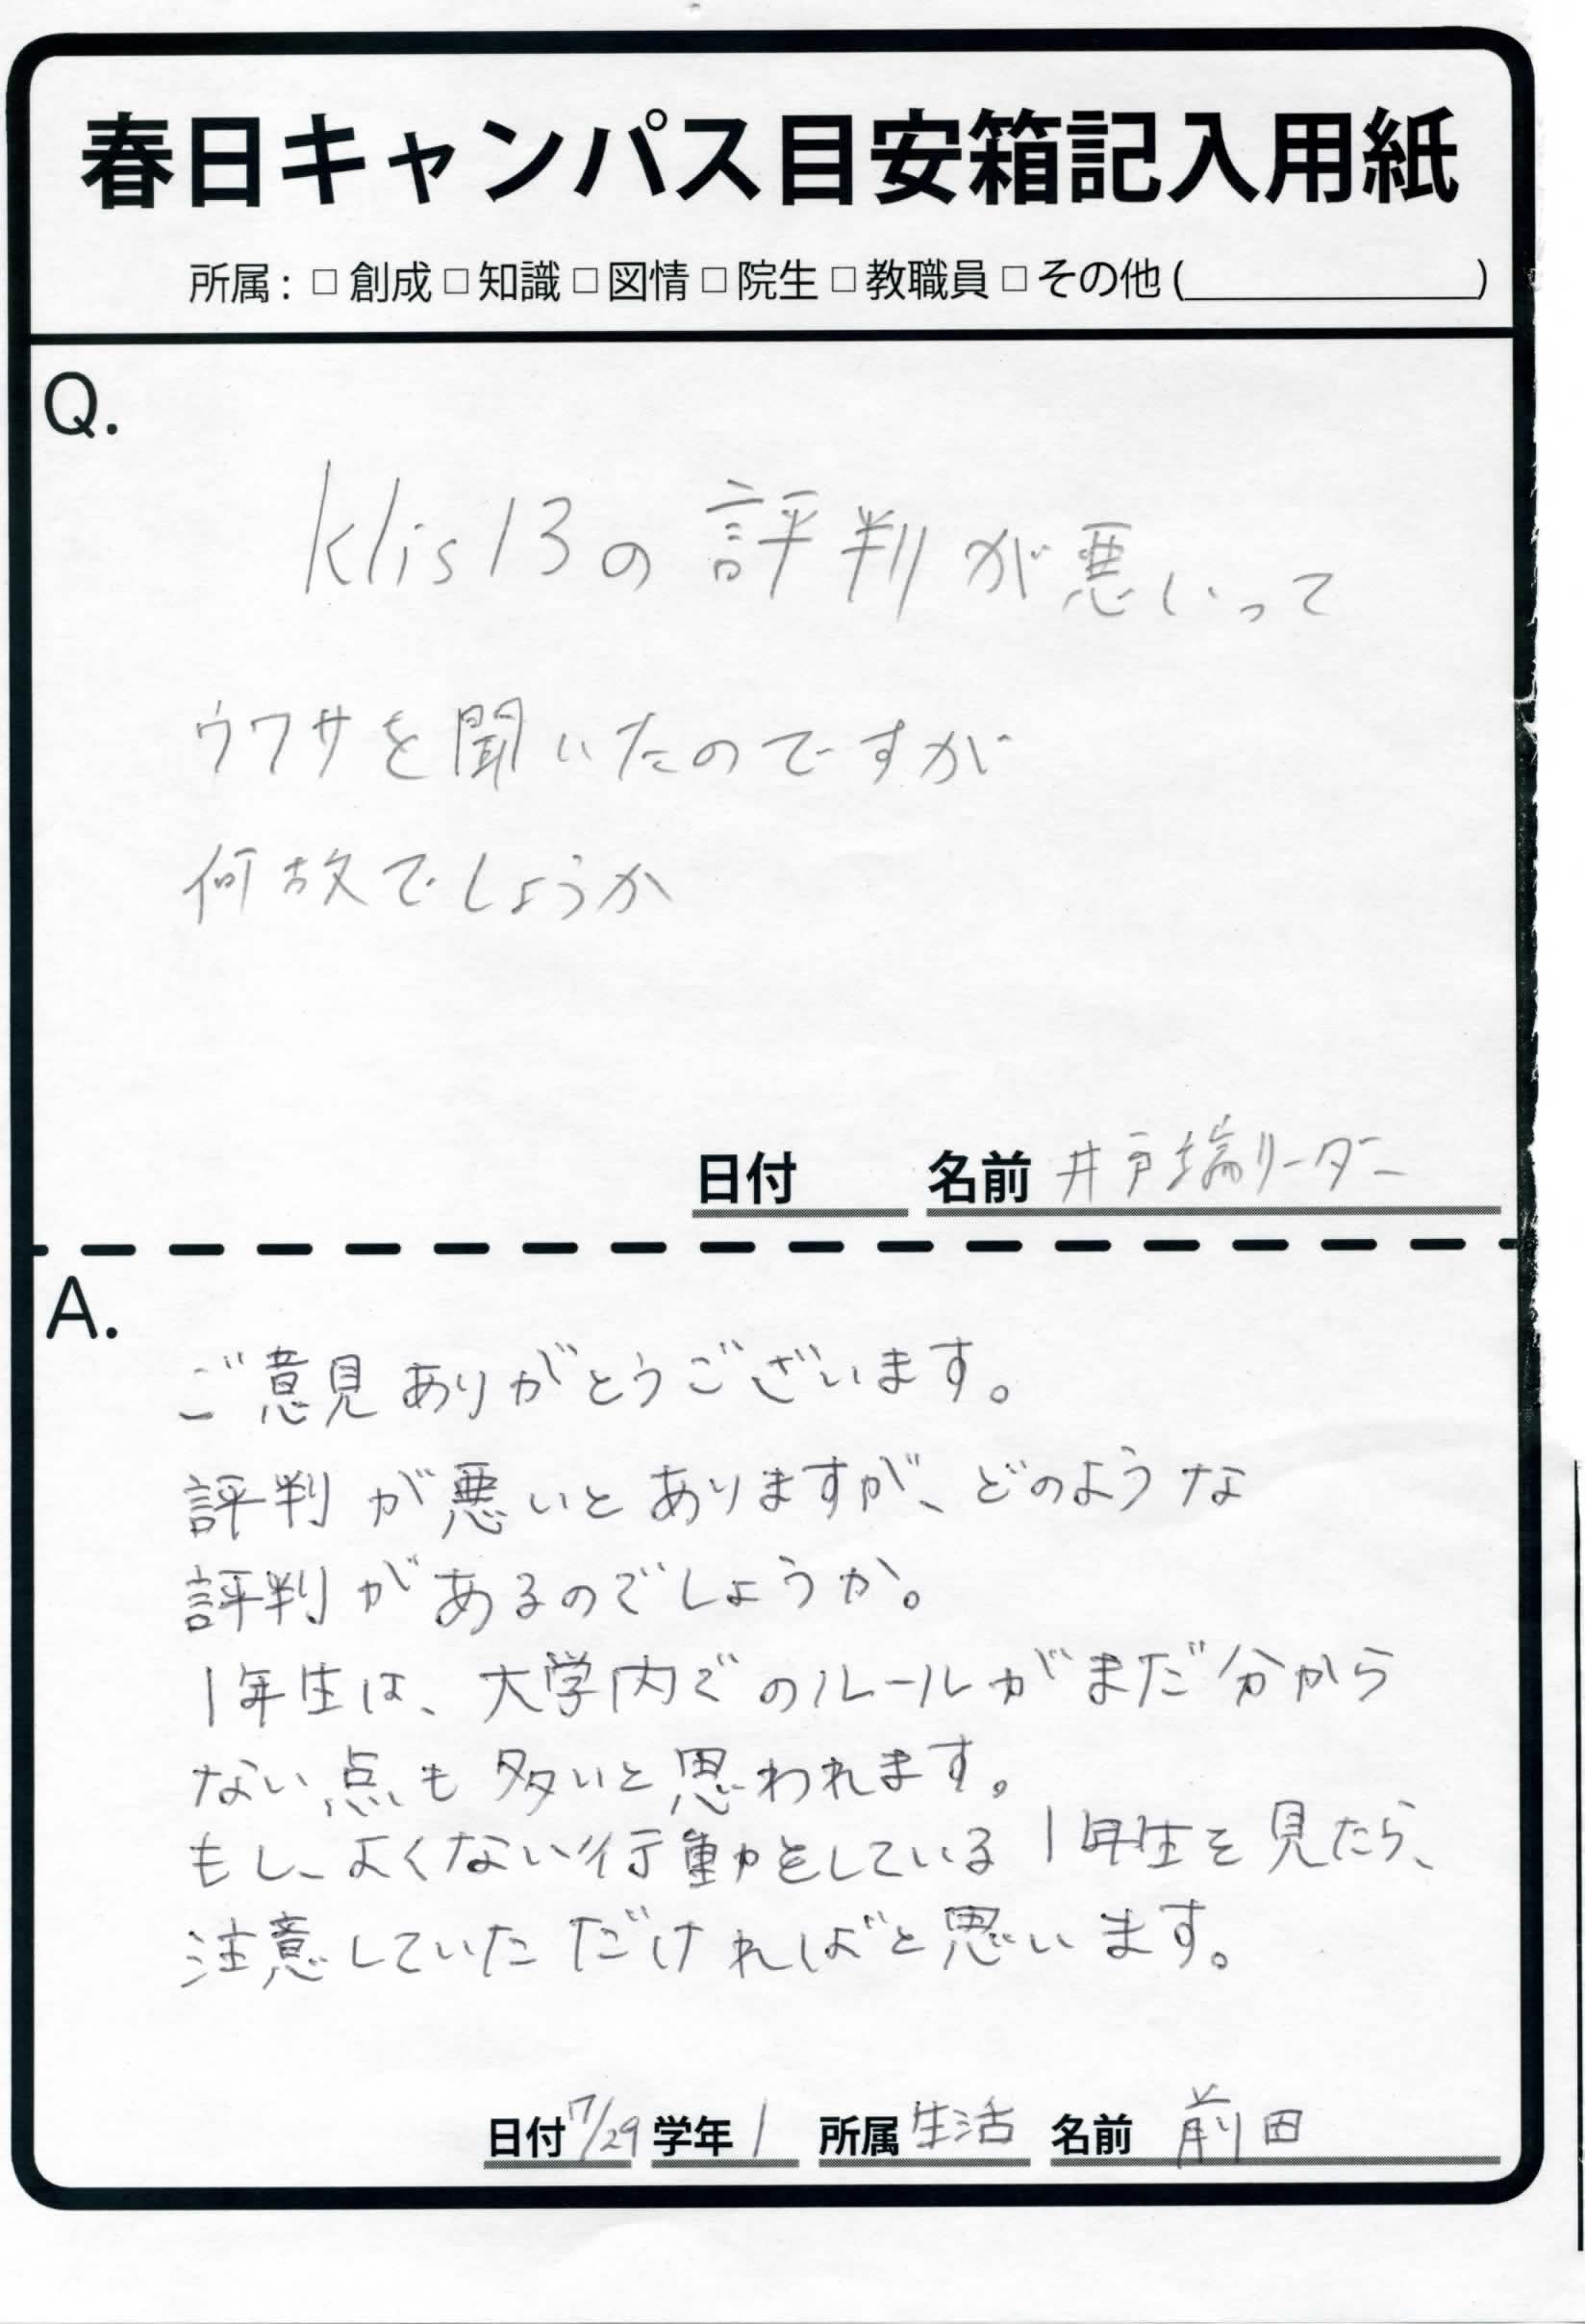 春日キャンパス目安箱記入用紙
所属：□ 創成 □ 知識 □ 図情 □ 院生 □ 教職員 □ その他 (　　　　)
Q.
klis13の評判が悪いって
ウワサを聞いたのですが
何故でしょうか
日付 名前 井戸端リーダー
A.
ご意見ありがとうございます。
評判が悪いとありますが、どのような
評判があるのでしょうか。
1年生は、大学内でのルールがまだ分から
ない点も多いと思われます。
もし、よくない行動をしている1年生を見たら、
注意していただければと思います。
日付 7/29 学年 1 所属 生活 名前 前田